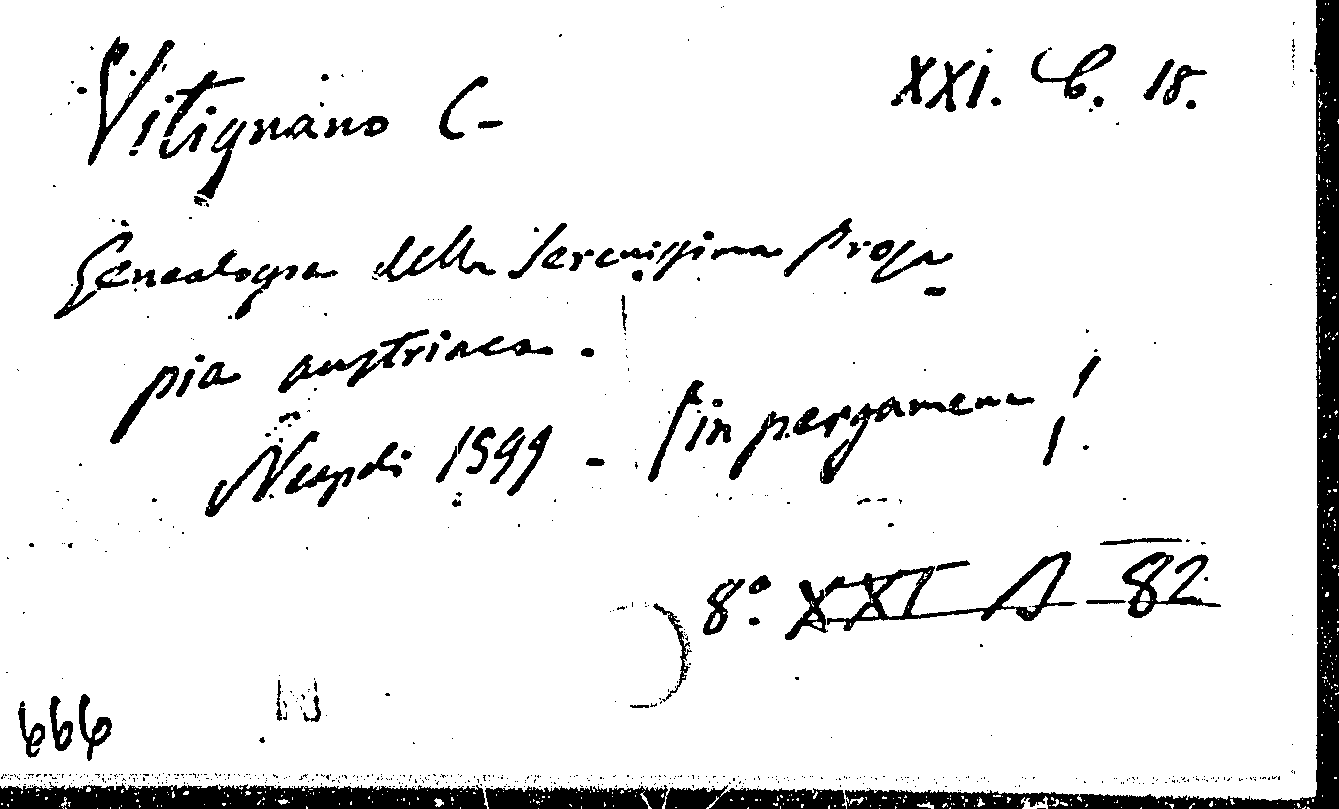 Vitignano C- XXI. C. 18.
Genealogia della Serenissima Proga
pia austriaca.
Neapoli 1599 - (in pergamena!
8º XXI A 82
666